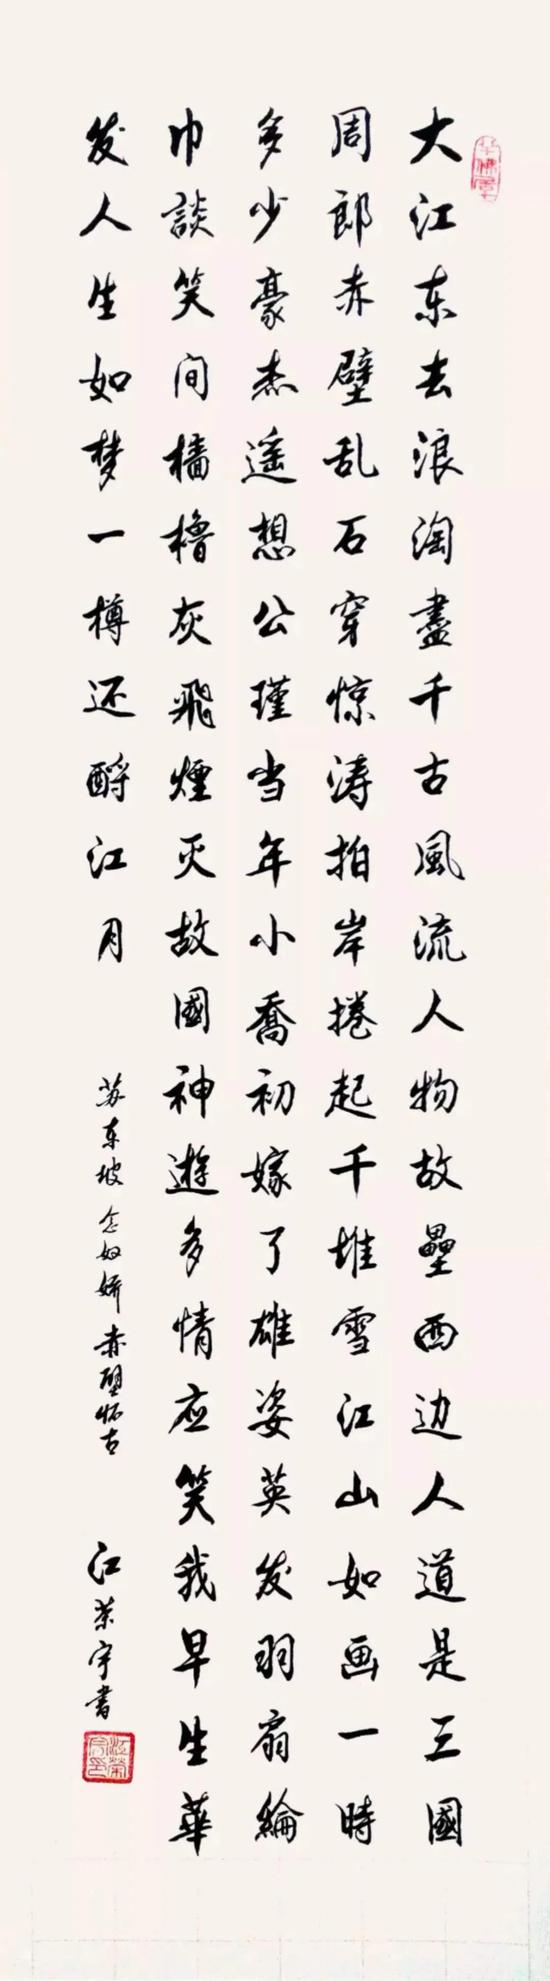 大江东去浪淘盡千古風流人物故壘西边人道是三國
周郎赤壁乱石穿惊涛拍岸捲起千堆雪江山如画一時
多少豪杰遥想公瑾当年小喬初嫁了雄姿英发羽扇綸
巾談笑间樯橹灰飛煙灭故國神遊多情应笑我早生華
发人生如梦一樽还酹江月
苏东坡念奴娇赤壁怀古
江荣宇書
江荣宇印